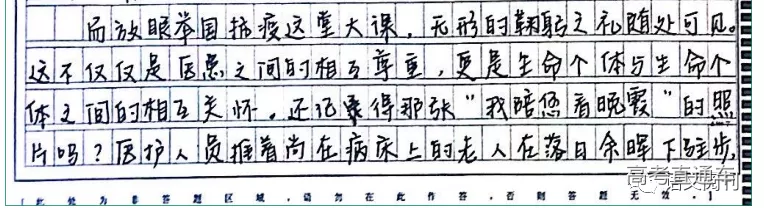 而放眼举国抗疫这堂大课，无形的鞠躬之礼随处可见。
这不仅仅是医患之间的相互尊重，更是生命个体与生命个
体之间的相互关怀。还记得那张“我陪您看晚霞”的照
片吗？医护人员推着尚在病床上的老人在落日余晖下驻步，
此处为非答题区域，请勿在此作答，否则答题无效。
高考直通车